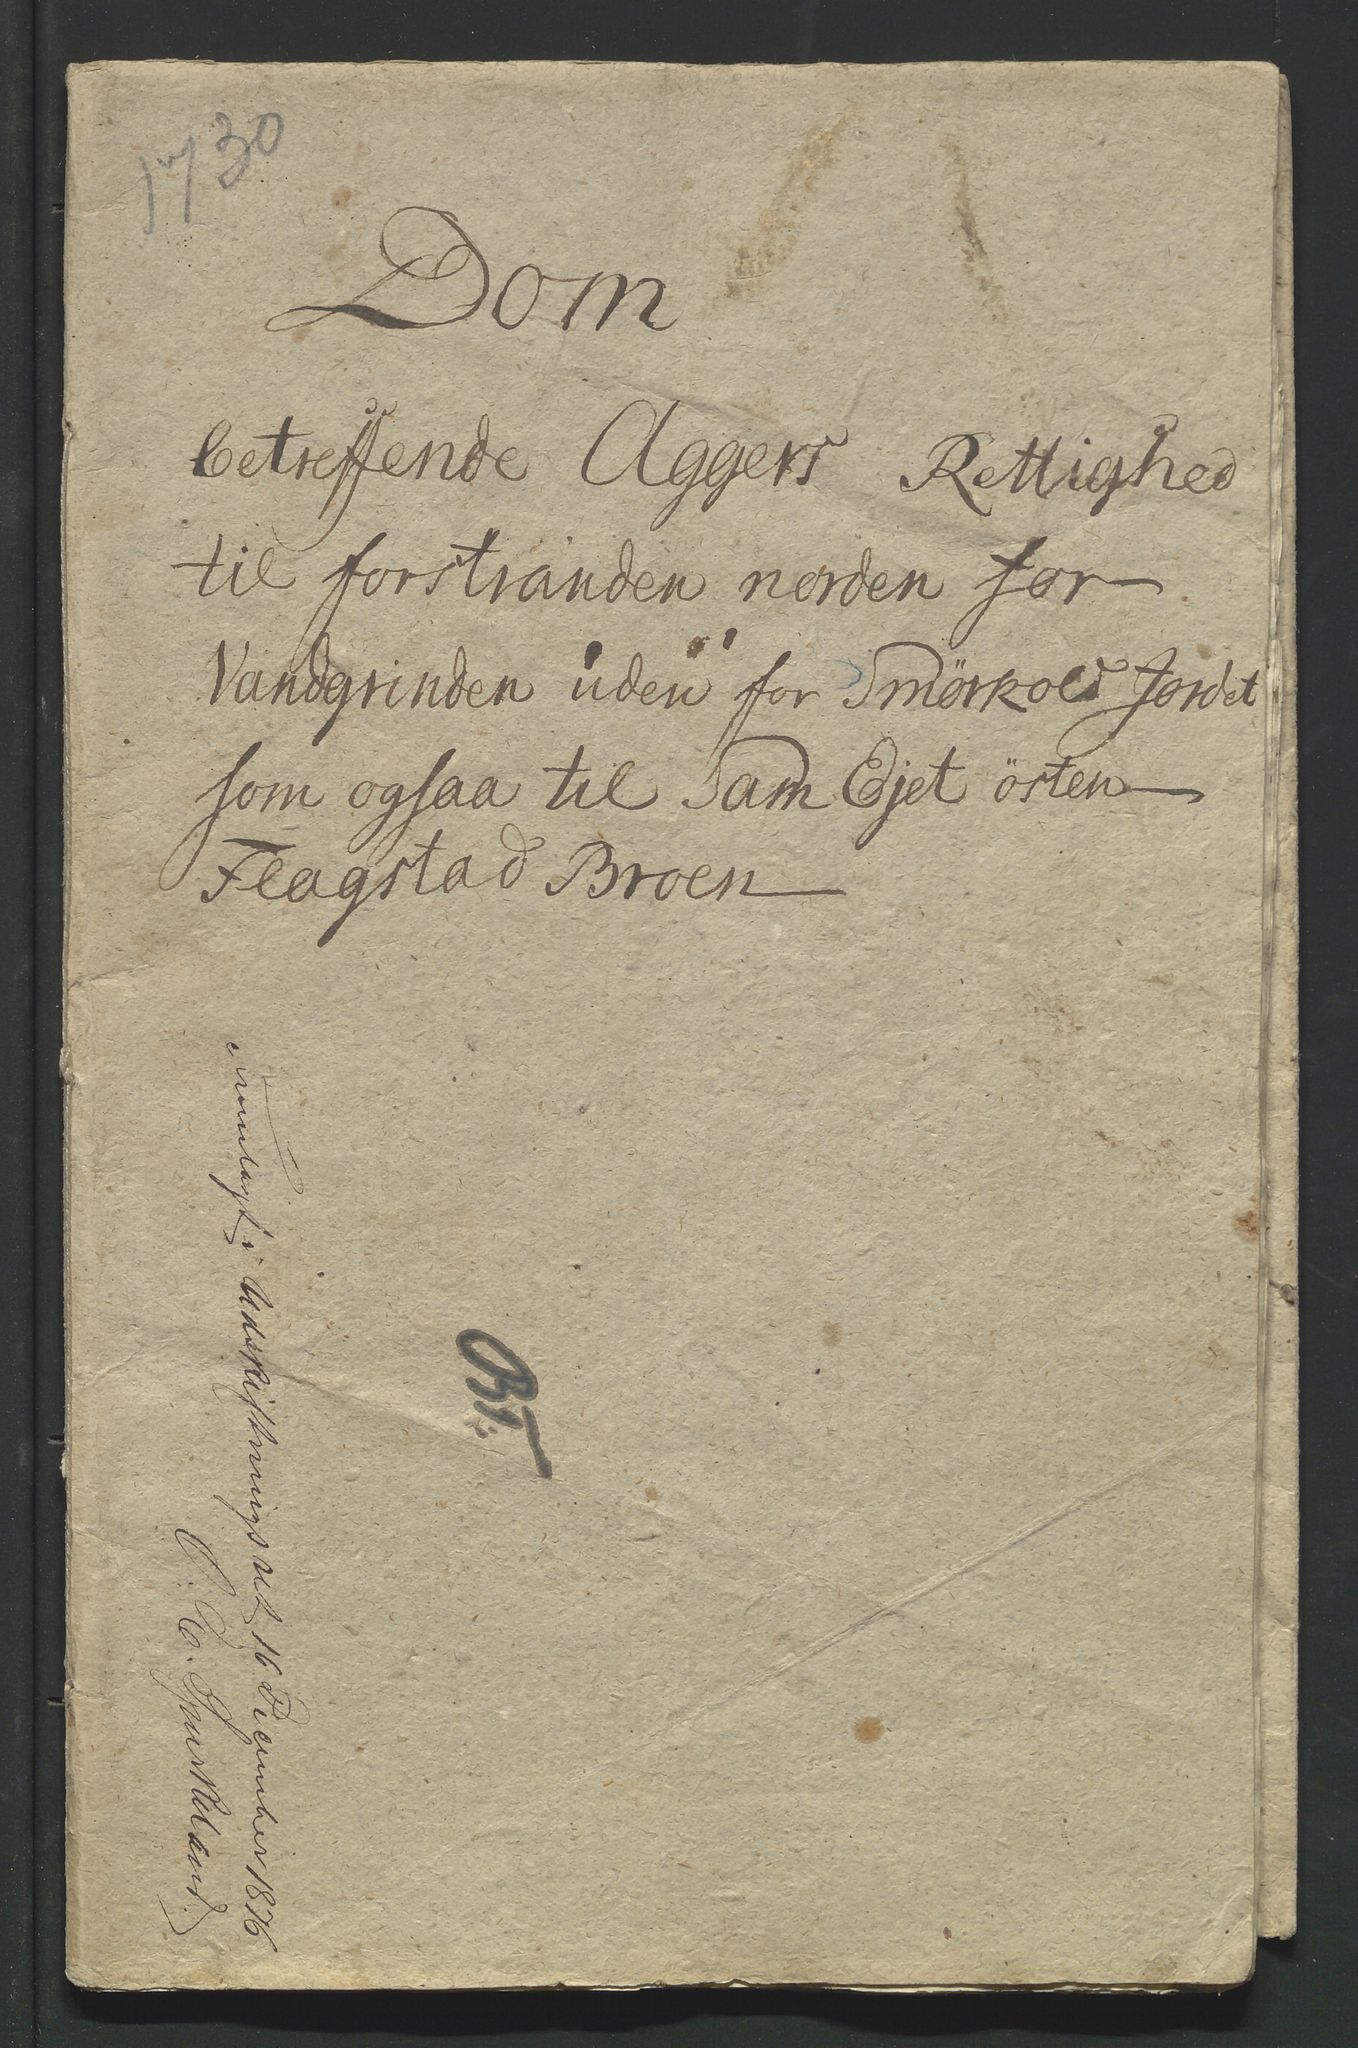 1730
Dom
betreffende Aggers Rettighed
til forstranden norden for
Vandgrinden uden for Smörkols Jordet
som ogsaa til Sam Ejet östen
Flagstad Broen
i Udskiftningsret 16 December 1876
C. E.